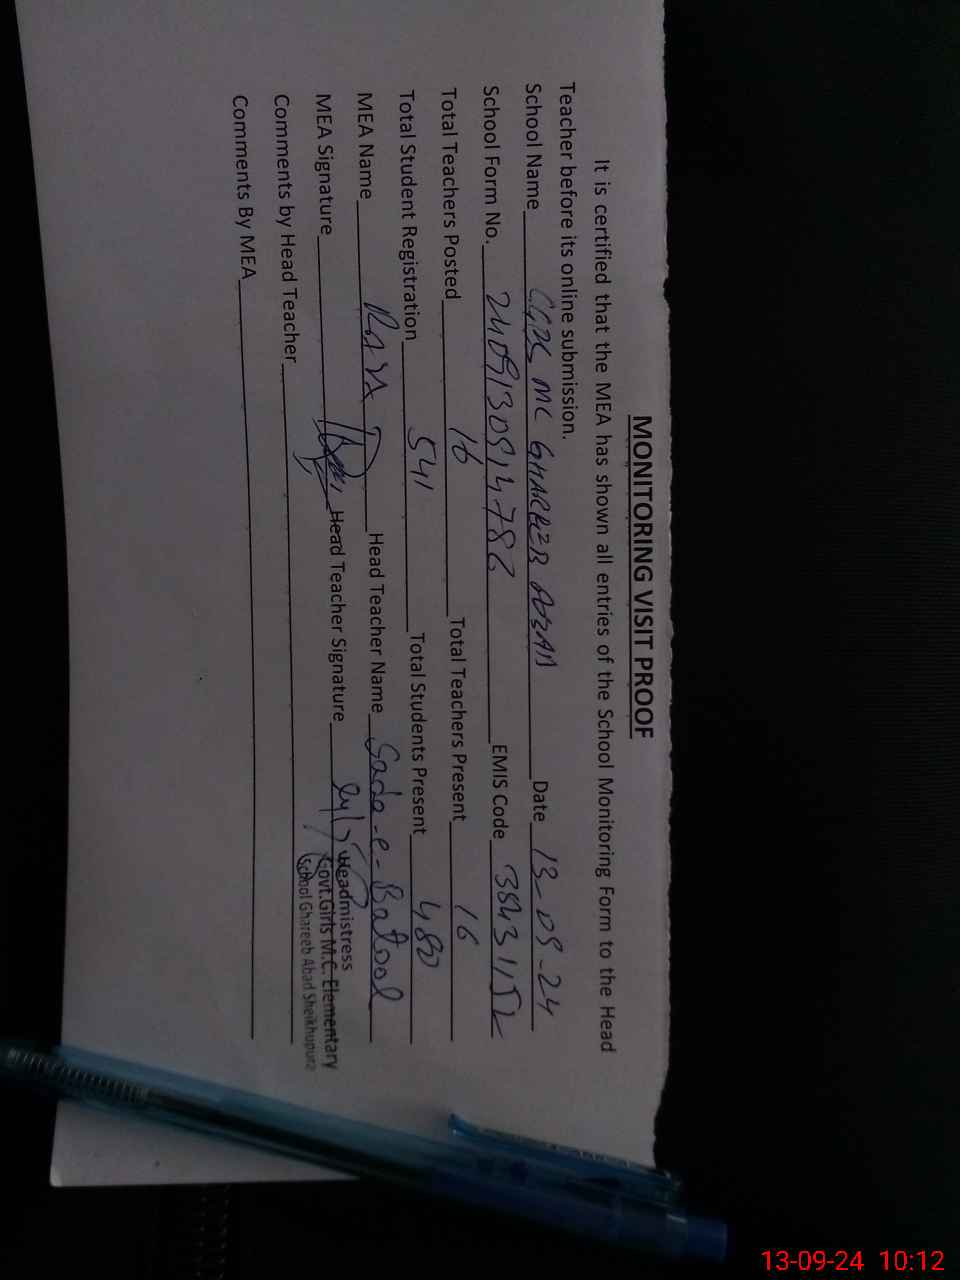 MONITORING VISIT PROOF
It is certified that the MEA has shown all entries of the School Monitoring Form to the Head
Teacher before its online submission.
School Name GGES MC GHAREEB ABAD Date 13-09-24
School Form No. EMIS Code
Total Teachers Posted 16 Total Teachers Present 16
Total Student Registration 541 Total Students Present 480
MEA Name Head Teacher Name Sada-e-Batool
MEA Signature Head Teacher Signature
Headmistress
Govt.Girls M.C. Elementary
School Ghareeb Abad Sheikhupura
Comments by Head Teacher
Comments By MEA
13-09-24 10:12